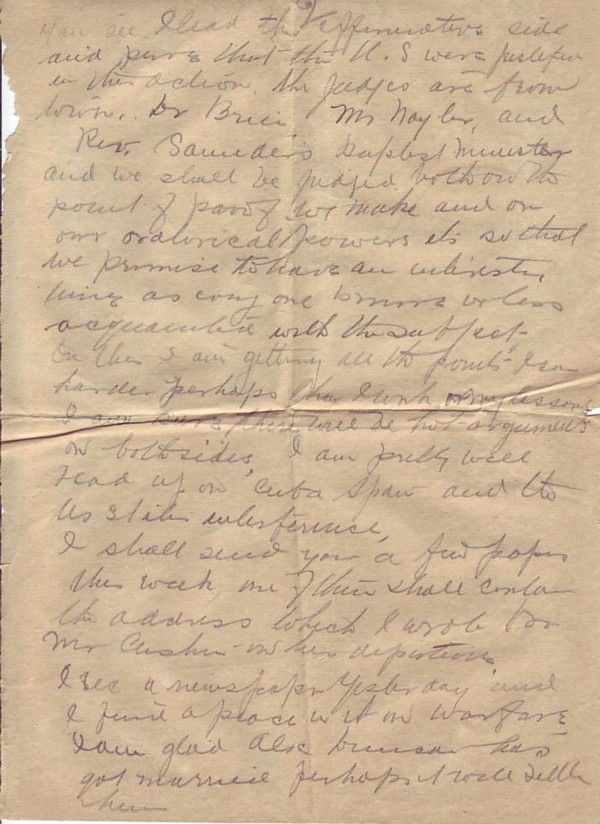 2
You see. I lead the affirmative side
and prove that the U. S were justified
in their action. The judges are from
town. Dr Mr Naylor, and
Rev. Saunders Baptist Minister
and we shall be judged both on the
point of proof we make and on
our oratorical powers its so that
we promise to have an interesting
time as every one is more or less
acquainted with the subject.
On this I am getting all the points I can
harder perhaps than I work on my lessons
I am sure there will be hot arguments
on both sides, I am pretty well
read up on Cuba Spain and the
interference,
I shall send you a few papers
this week, one of them shall contain
the address which I wrote for
Mr on his departure,
I see a newspaper yesterday and
I find a peace in it on warfare,
I am glad Alex Duncan has
got married perhaps it will settle
him